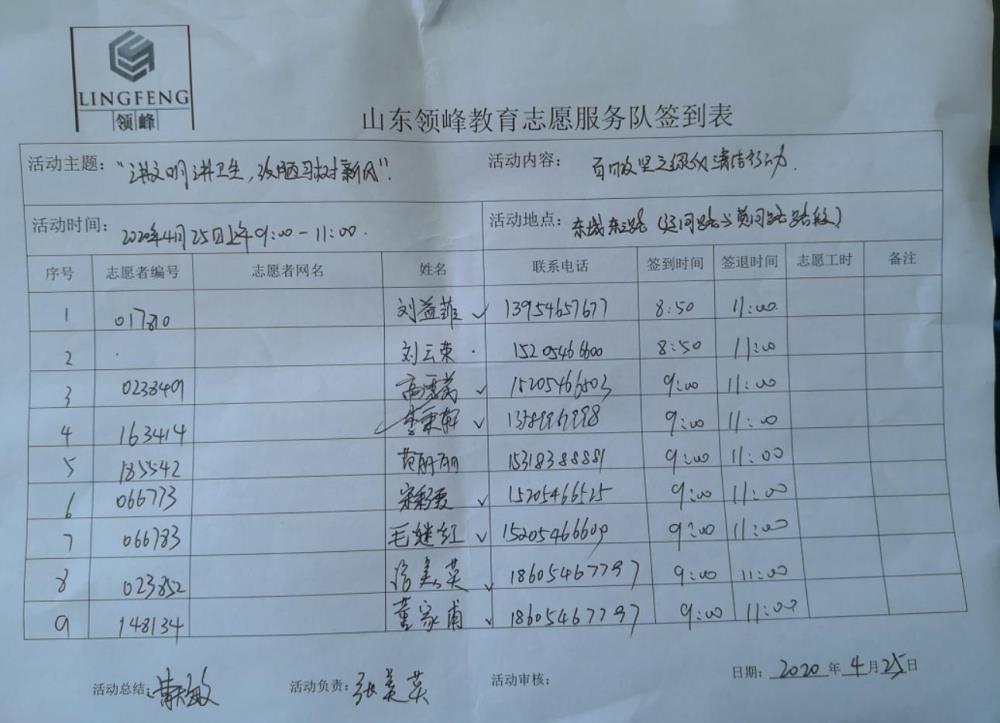 LINGFENG
领峰
山东领峰教育志愿服务队签到表
活动主题：“讲文明讲卫生，改陋习树新风”. 活动内容： 清洁行动.
活动时间： 2020年4月25日上午9:00-11:00. 活动地点： 东城东三路（辽河路与黄河路路段）
序号 志愿者编号 志愿者网名 姓名 联系电话 签到时间 签退时间 志愿工时 备注
1 017810 刘益菲 ✓ 13954657677 8:50 11:00
2 刘云荣 15205466600 8:50 11:00
3 0238409 ✓ 15205466803 9:00 11:00
4 163414 李秉轩 ✓ 9:00 11:00
5 185542 范丽丽 15318388881 9:00 11:00
6 066773 ✓ 15205466525 9:00 11:00
7 066783 毛继红 ✓ 15205466609 9:00 11:00
8 023852 ✓ 18605467797 9:00 11:00
9 148134 董家甫 ✓ 18605467797 9:00 11:00
活动总结： 活动负责：张美英 活动审核： 日期：2020年4月25日